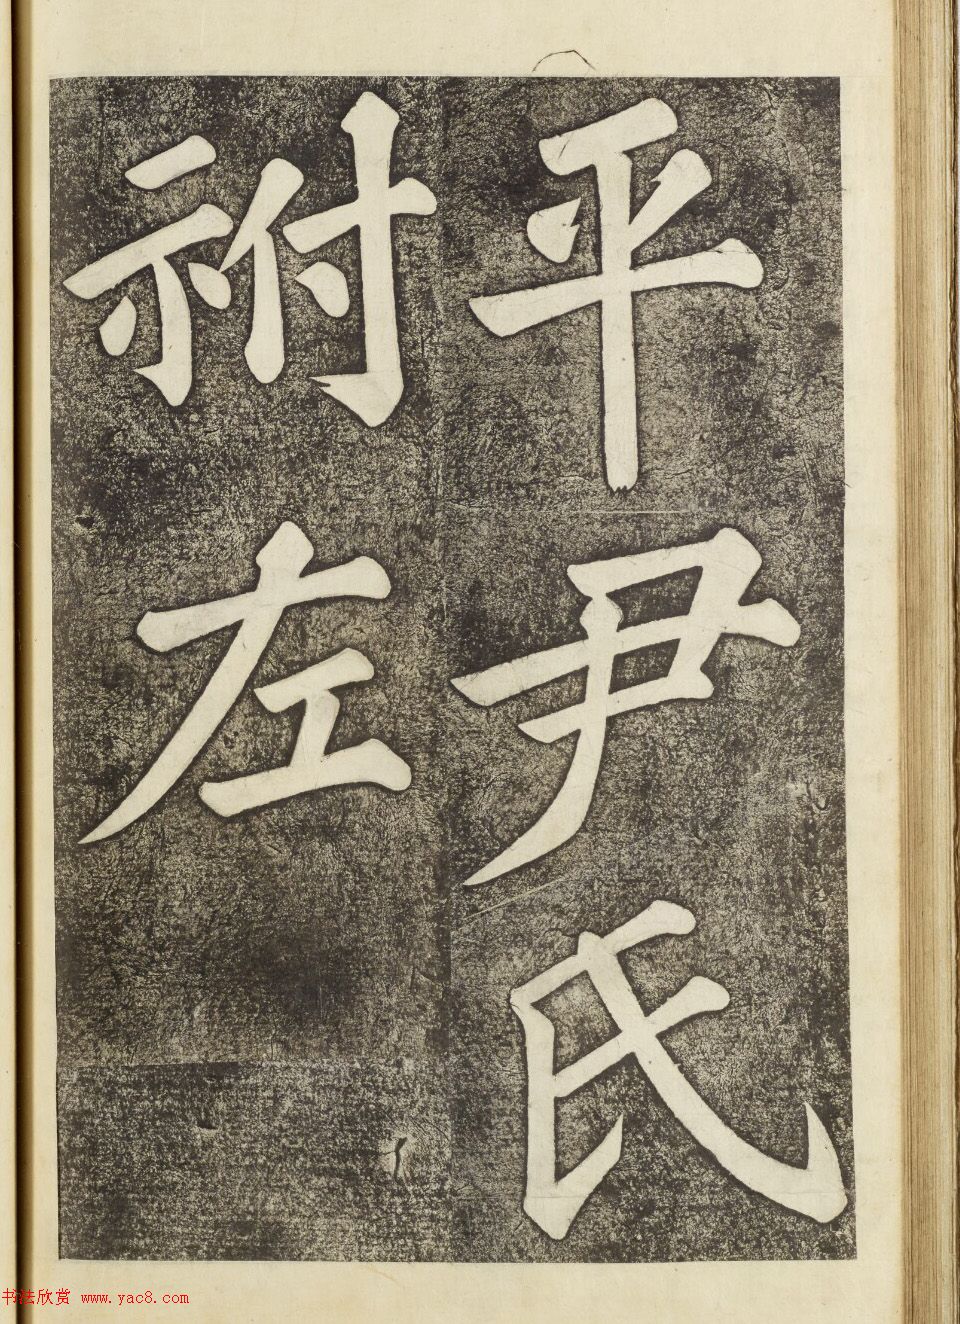 平尹氏
祔左
书法欣赏 www.yac8.com